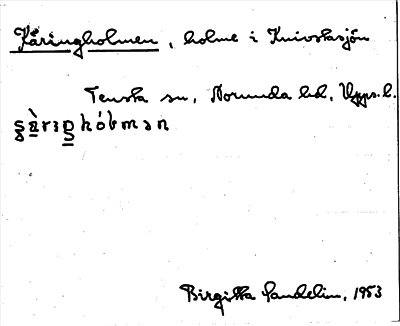 Kåringholmen, holme i Knivstasjön
Tensta sn, Norunda hd, Upps. l.
Birgitta Sandelin, 1953